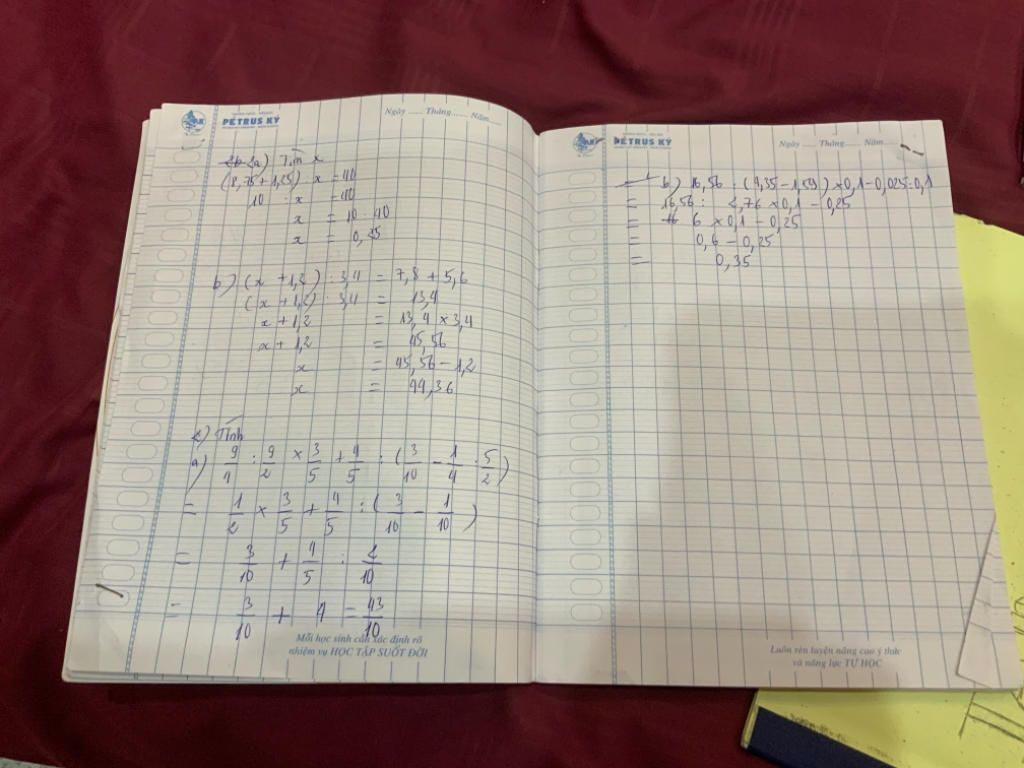 PETRUS KÝ
Ngày ..... Tháng ...... Năm ....
2a) Tìm x
(8,75 + 1,25) : x = 40
10 : x = 40
x = 10 : 40
x = 0,25
b) (x + 1,2) : 3,4 = 7,8 + 5,6
(x + 1,2) : 3,4 = 13,4
x + 1,2 = 13,4 × 3,4
x + 1,2 = 45,56
x = 45,56 - 1,2
x = 44,36
Tính
a) 9/4 : 9/2 × 3/5 + 4/5 : (3/10 - 1/4 : 5/2)
= 1/2 × 3/5 + 4/5 : (3/10 - 1/10)
= 3/10 + 4/5 : 2/10
= 3/10 + 4 = 43/10
Mỗi học sinh cần xác định rõ
nhiệm vụ HỌC TẬP SUỐT ĐỜI
PETRUS KÝ
Ngày ..... Tháng ...... Năm
b) 16,56 : (4,35 - 1,59) × 0,1 - 0,025 : 0,1
= 16,56 : 2,76 × 0,1 - 0,25
= 6 × 0,1 - 0,25
= 0,6 - 0,25
= 0,35
Luôn rèn luyện nâng cao ý thức
và năng lực TỰ HỌC